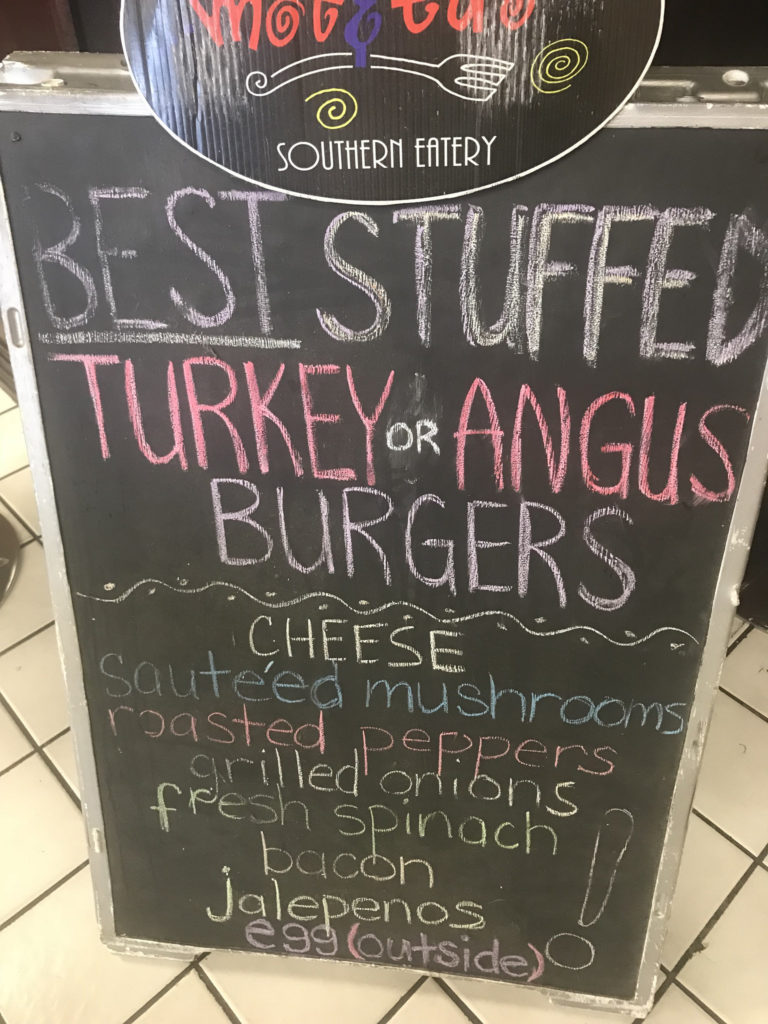 SOUTHERN EATERY
BEST STUFFED
TURKEY OR ANGUS
BURGERS
CHEESE
saute'ed mushrooms
roasted peppers
grilled onions
fresh spinach
bacon
jalepenos
egg (outside)
!